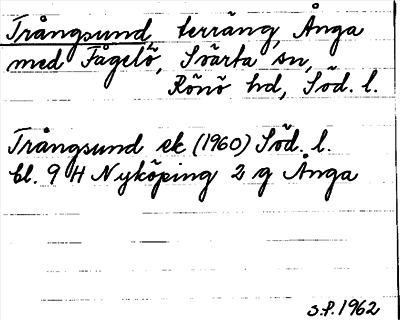 Trångsund, terräng, Ånga
med Fågelö, Svärta sn,
Rönö hd, Söd. l.
Trångsund ek (1960) Söd. l.
bl. 9 H Nyköping 2 g Ånga
S.P. 1962